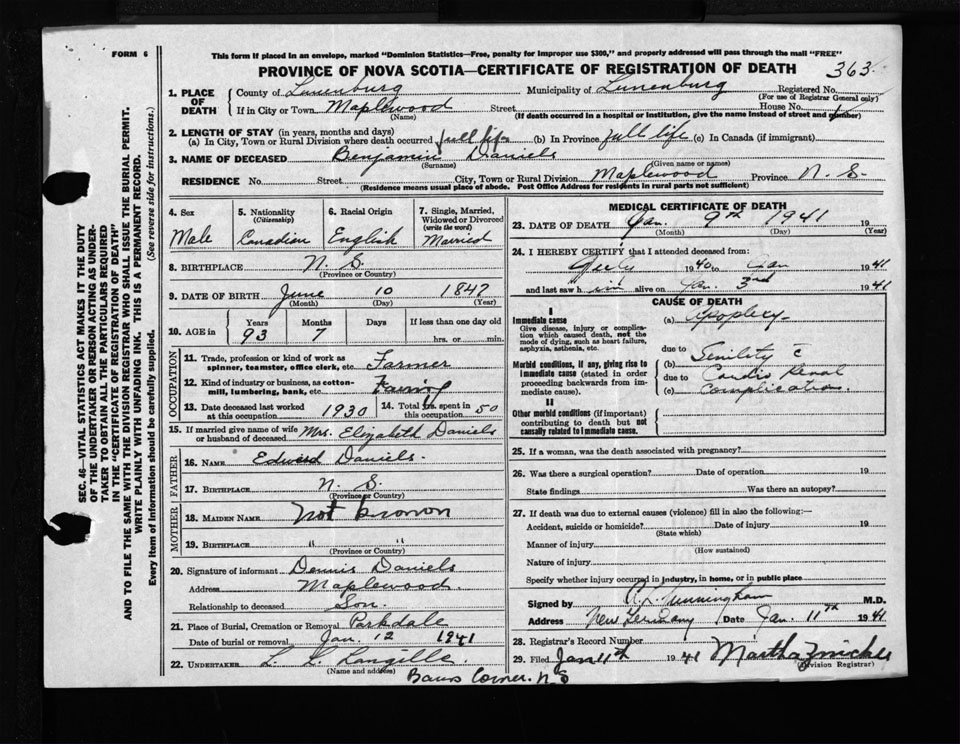 FORM 6
This form if placed in an envelope, marked "Dominion Statistics—Free, penalty for improper use $300," and properly addressed will pass through the mail "FREE"
PROVINCE OF NOVA SCOTIA—CERTIFICATE OF REGISTRATION OF DEATH 363
1. PLACE OF DEATH County of Lunenburg Municipality of Lunenburg Registered No.
(For use of Registrar General only)
If in City or Town Maplewood Street House No.
(Name) (If death occurred in a hospital or institution, give the name instead of street and number)
2. LENGTH OF STAY (in years, months and days)
(a) In City, Town or Rural Division where death occurred full life (b) In Province full life (c) In Canada (if immigrant)
3. NAME OF DECEASED Benjamin Daniels
(Surname) (Given name or names)
RESIDENCE No. Street City, Town or Rural Division Maplewood Province N. S.
(Residence means usual place of abode. Post Office Address for residents in rural parts not sufficient)
4. Sex Male
5. Nationality (Citizenship) Canadian
6. Racial Origin English
7. Single, Married, Widowed or Divorced (write the word) Married
8. BIRTHPLACE N. S.
(Province or Country)
9. DATE OF BIRTH June 10 1847
(Month) (Day) (Year)
10. AGE in Years Months Days If less than one day old
93 7 hrs. or min.
OCCUPATION
11. Trade, profession or kind of work as spinner, teamster, office clerk, etc. Farmer
12. Kind of industry or business, as cotton-mill, lumbering, bank, etc. Farming
13. Date deceased last worked at this occupation 1930
14. Total yrs. spent in this occupation 50
15. If married give name of wife or husband of deceased Mrs. Elizabeth Daniels
FATHER
16. NAME Edward Daniels
17. BIRTHPLACE N. S.
(Province or Country)
MOTHER
18. MAIDEN NAME Not known
19. BIRTHPLACE " "
(Province or Country)
20. Signature of informant Dennis Daniels
Address Maplewood
Relationship to deceased Son
21. Place of Burial, Cremation or Removal Parkdale
Date of burial or removal Jan. 12 1941
22. UNDERTAKER L. L. Langille
(Name and address)
Barss Corner. N S
MEDICAL CERTIFICATE OF DEATH
23. DATE OF DEATH Jan. 9th 1941 19
(Month) (Day) (Year)
24. I HEREBY CERTIFY that I attended deceased from:
July 1940 to Jan 1941
and last saw him alive on Jan. 3rd 1941
CAUSE OF DEATH
I
Immediate cause
Give disease, injury or complication which caused death, not the mode of dying, such as heart failure, asphyxia, asthenia, etc.
(a) Apoplexy
due to
Morbid conditions, if any, giving rise to immediate cause (stated in order proceeding backwards from immediate cause)
(b) Senility c̄
due to Cardio Renal
(c) Complication.
II
Other morbid conditions (if important) contributing to death but not causally related to immediate cause.
25. If a woman, was the death associated with pregnancy?
26. Was there a surgical operation? Date of operation 19
State findings Was there an autopsy?
27. If death was due to external causes (violence) fill in also the following:—
Accident, suicide or homicide? Date of injury 19
(State which)
Manner of injury
(How sustained)
Nature of injury
Specify whether injury occurred in industry, in home, or in public place
Signed by M.D.
Address New Germany Date Jan. 11th 1941
28. Registrar's Record Number
29. Filed Jan 11th 1941 Martha Zwicker
(Division Registrar)
SEC. 46—VITAL STATISTICS ACT MAKES IT THE DUTY
OF THE UNDERTAKER OR PERSON ACTING AS UNDER-
TAKER TO OBTAIN ALL THE PARTICULARS REQUIRED
IN THE "CERTIFICATE OF REGISTRATION OF DEATH"
AND TO FILE THE SAME WITH THE DIVISION REGISTRAR WHO SHALL ISSUE THE BURIAL PERMIT.
WRITE PLAINLY WITH UNFADING INK. THIS IS A PERMANENT RECORD.
Every item of information should be carefully supplied. (See reverse side for instructions.)